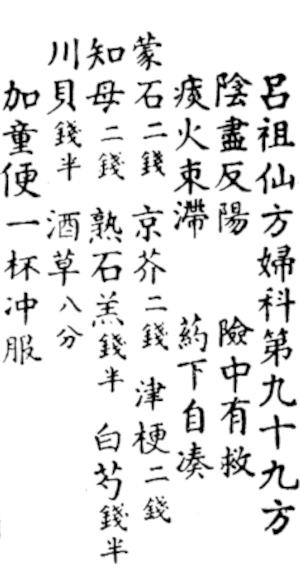 呂祖仙方婦科第九十九方
陰盡反陽　險中有救
痰火束滯　葯下自凑
蒙石二錢　京芥二錢　津梗二錢
知母二錢　熟石羔錢半　白芍錢半
川貝錢半　酒草八分
加童便一杯冲服